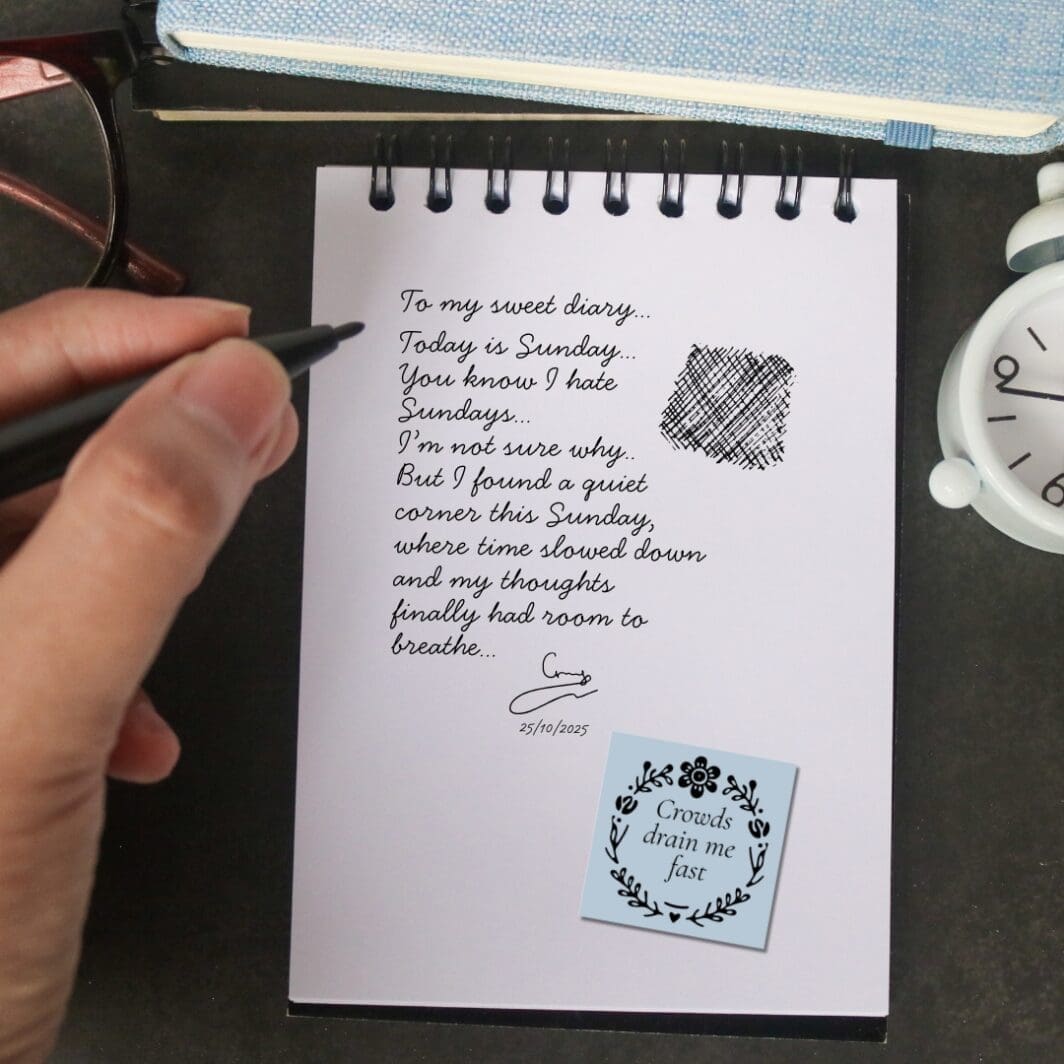 To my sweet diary...
Today is Sunday...
You know I hate
Sundays...
I'm not sure why..
But I found a quiet
corner this Sunday,
where time slowed down
and my thoughts
finally had room to
breathe...
25/10/2025
Crowds
drain me
fast
9
6